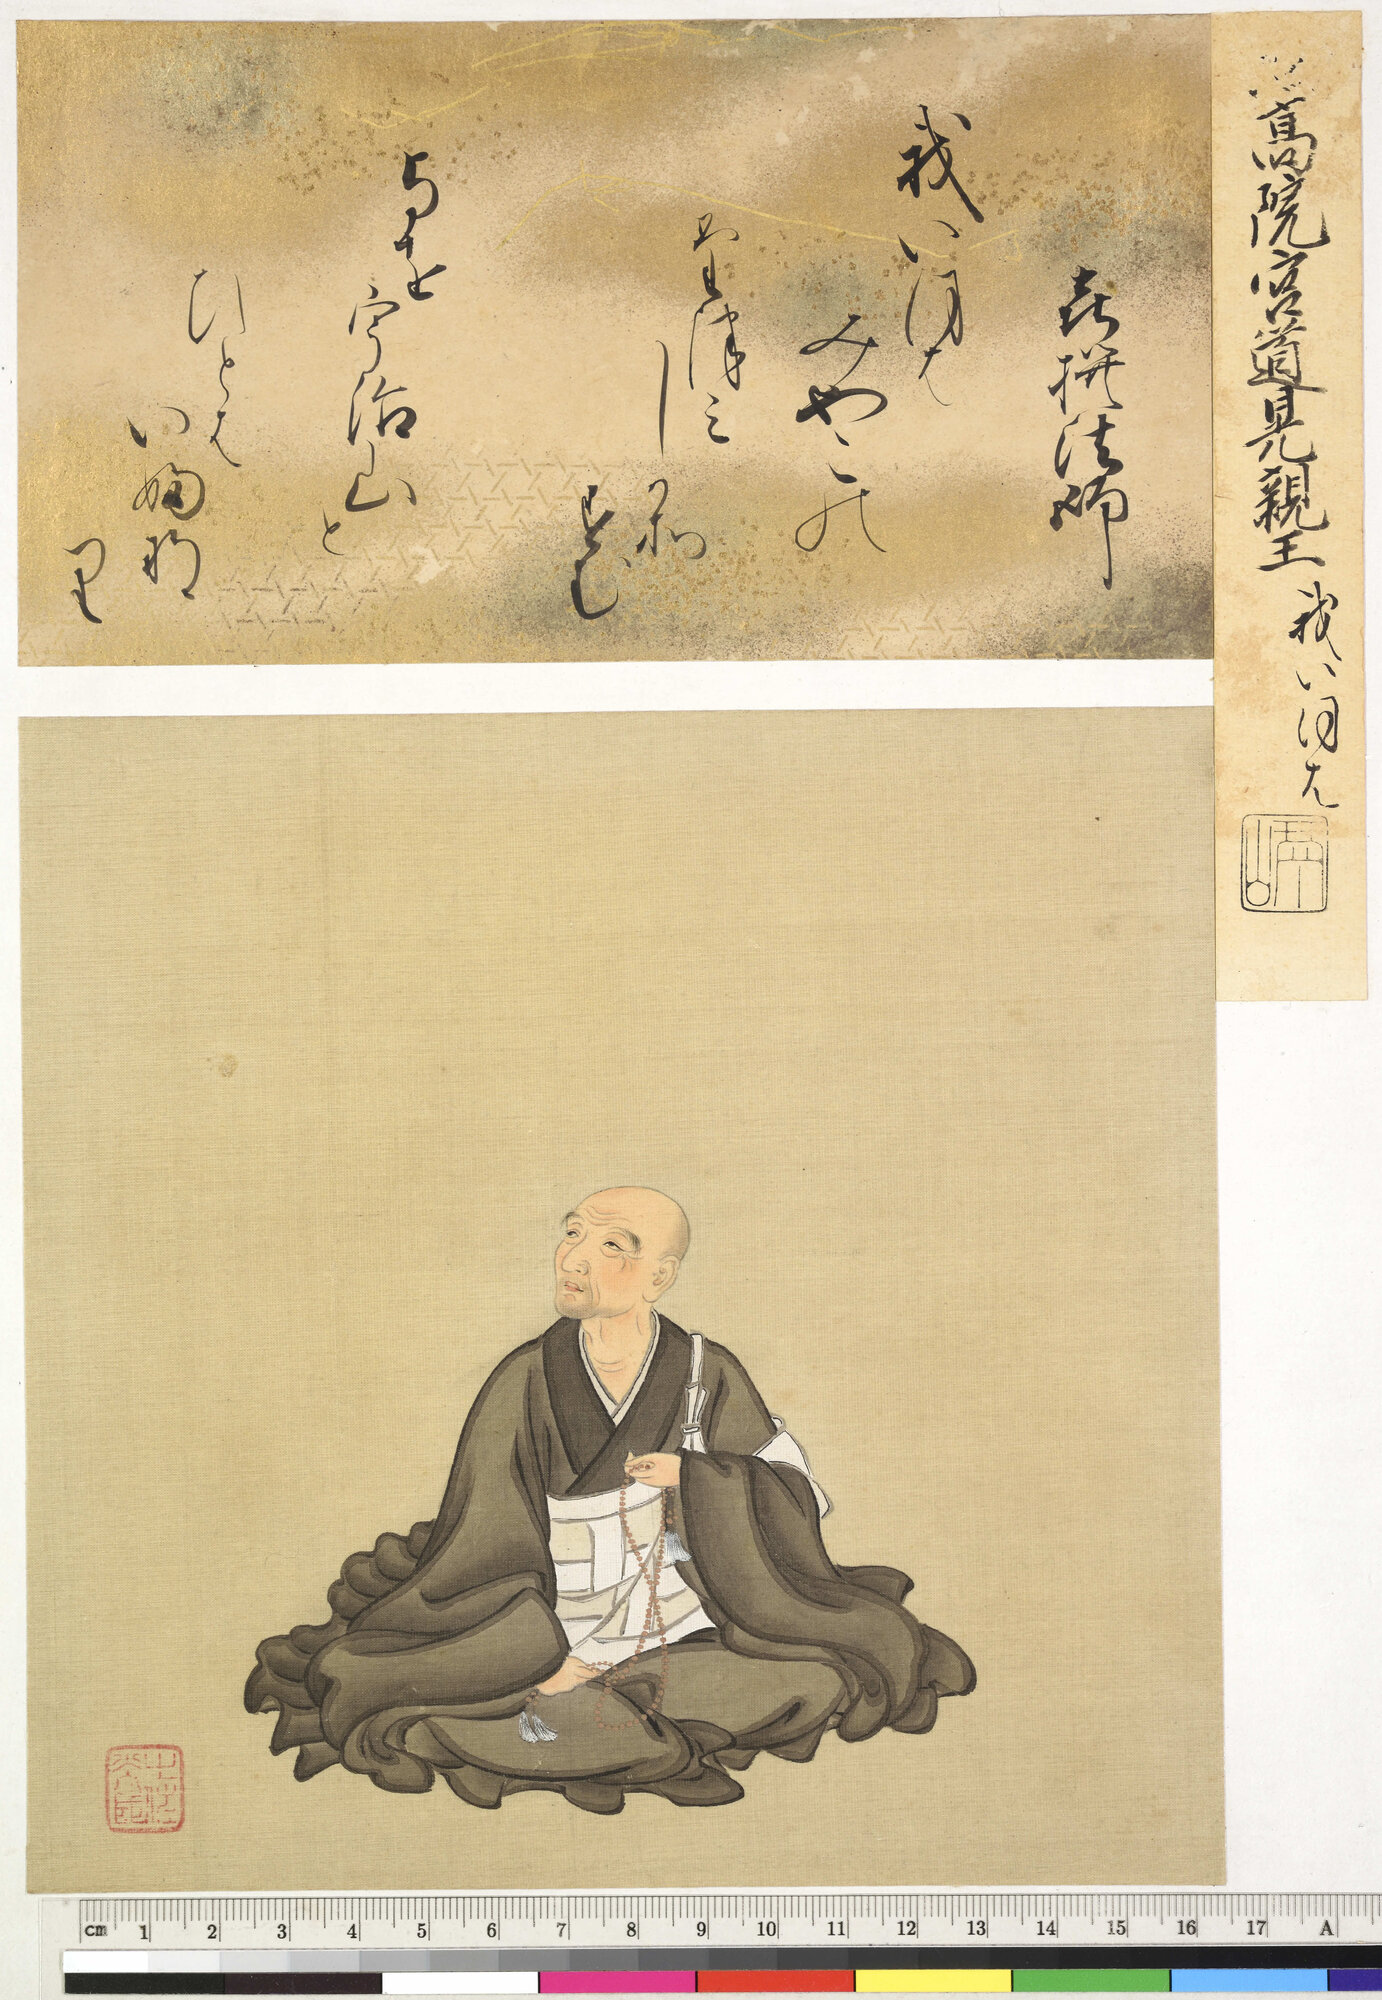 照高院宮道晃親王 我いほは
琴山
喜撰法師
我いほは
みやこの
たつミ
しかそ
すむ
与を
宇治山
と
ひとは
い婦那
里
cm 1 2 3 4 5 6 7 8 9 10 11 12 13 14 15 16 17 A